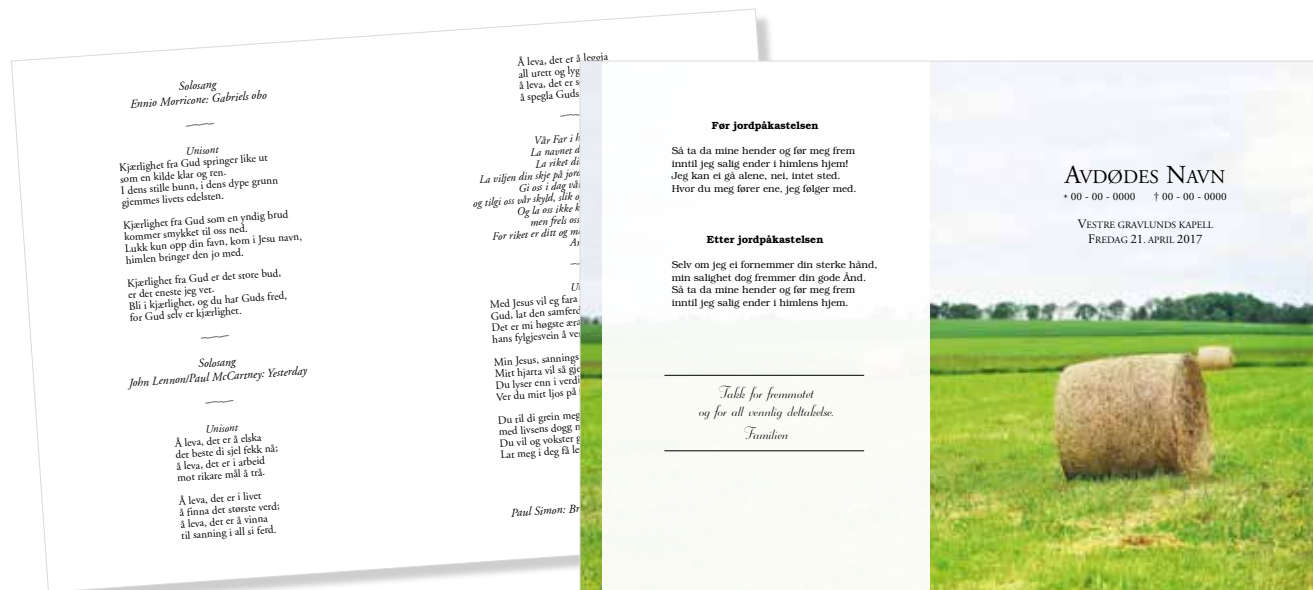 Solosang
Ennio Morricone: Gabriels obo
Unisont
Kjærlighet fra Gud springer like ut
som en kilde klar og ren.
I dens stille bunn, i dens dype grunn
gjemmes livets edelsten.
Kjærlighet fra Gud som en yndig brud
kommer smykket til oss ned.
Lukk kun opp din favn, kom i Jesu navn,
himlen bringer den jo med.
Kjærlighet fra Gud er det store bud,
er det eneste jeg vet.
Bli i kjærlighet, og du har Guds fred,
for Gud selv er kjærlighet.
Solosang
John Lennon/Paul McCartney: Yesterday
Unisont
Å leva, det er å elska
det beste di sjel fekk nå;
å leva, det er i arbeid
mot rikare mål å trå.
Å leva, det er i livet
å finna det største verd;
å leva, det er å vinna
til sanning i all si ferd.
Å leva, det er å leggja
all urett og
å leva, det er
å spegla Guds
Vår Far i
La navnet
La riket
La viljen din skje på
Gi oss i dag
og tilgi oss vår skyld, slik
Og la oss ikke
men frels oss
For riket er ditt og
Med Jesus vil eg fara
Gud, lat den
Det er mi høgste
hans fylgjesvein å
Min Jesus,
Mitt hjarta vil så
Du lyser enn i
Ver du mitt ljos på
Du til di grein meg
med livsens dogg
Du vil og vokster
Lat meg i deg få
Paul Simon:
Før jordpåkastelsen
Så ta da mine hender og før meg frem
inntil jeg salig ender i himlens hjem!
Jeg kan ei gå alene, nei, intet sted.
Hvor du meg fører ene, jeg følger med.
Etter jordpåkastelsen
Selv om jeg ei fornemmer din sterke hånd,
min salighet dog fremmer din gode Ånd.
Så ta da mine hender og før meg frem
inntil jeg salig ender i himlens hjem.
Takk for fremmøtet
og for all vennlig deltakelse.
Familien
Avdødes Navn
* 00 - 00 - 0000 † 00 - 00 - 0000
Vestre gravlunds kapell
Fredag 21. april 2017